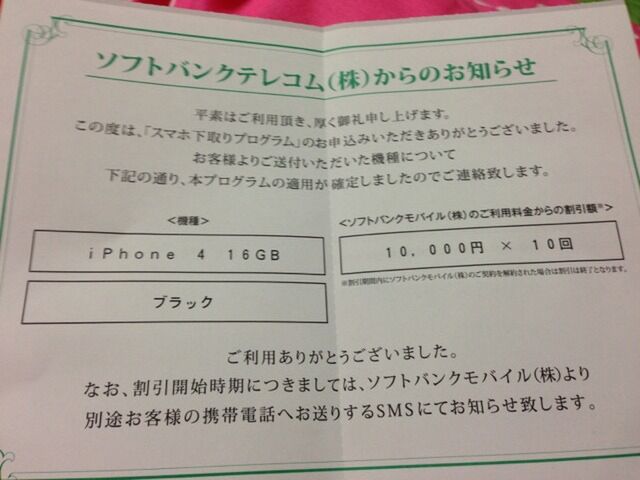 ソフトバンクテレコム(株)からのお知らせ
平素はご利用頂き、厚く御礼申し上げます。
この度は、「スマホ下取りプログラム」のお申込みいただきありがとうございました。
お客様よりご送付いただいた機種について
下記の通り、本プログラムの適用が確定しましたのでご連絡致します。
<機種>
iPhone 4 16GB
ブラック
<ソフトバンクモバイル(株)のご利用料金からの割引額※>
10,000円 × 10回
※割引期間内にソフトバンクモバイル(株)のご契約を解約された場合は割引は終了となります。
ご利用ありがとうございました。
なお、割引開始時期につきましては、ソフトバンクモバイル(株)より
別途お客様の携帯電話へお送りするSMSにてお知らせ致します。